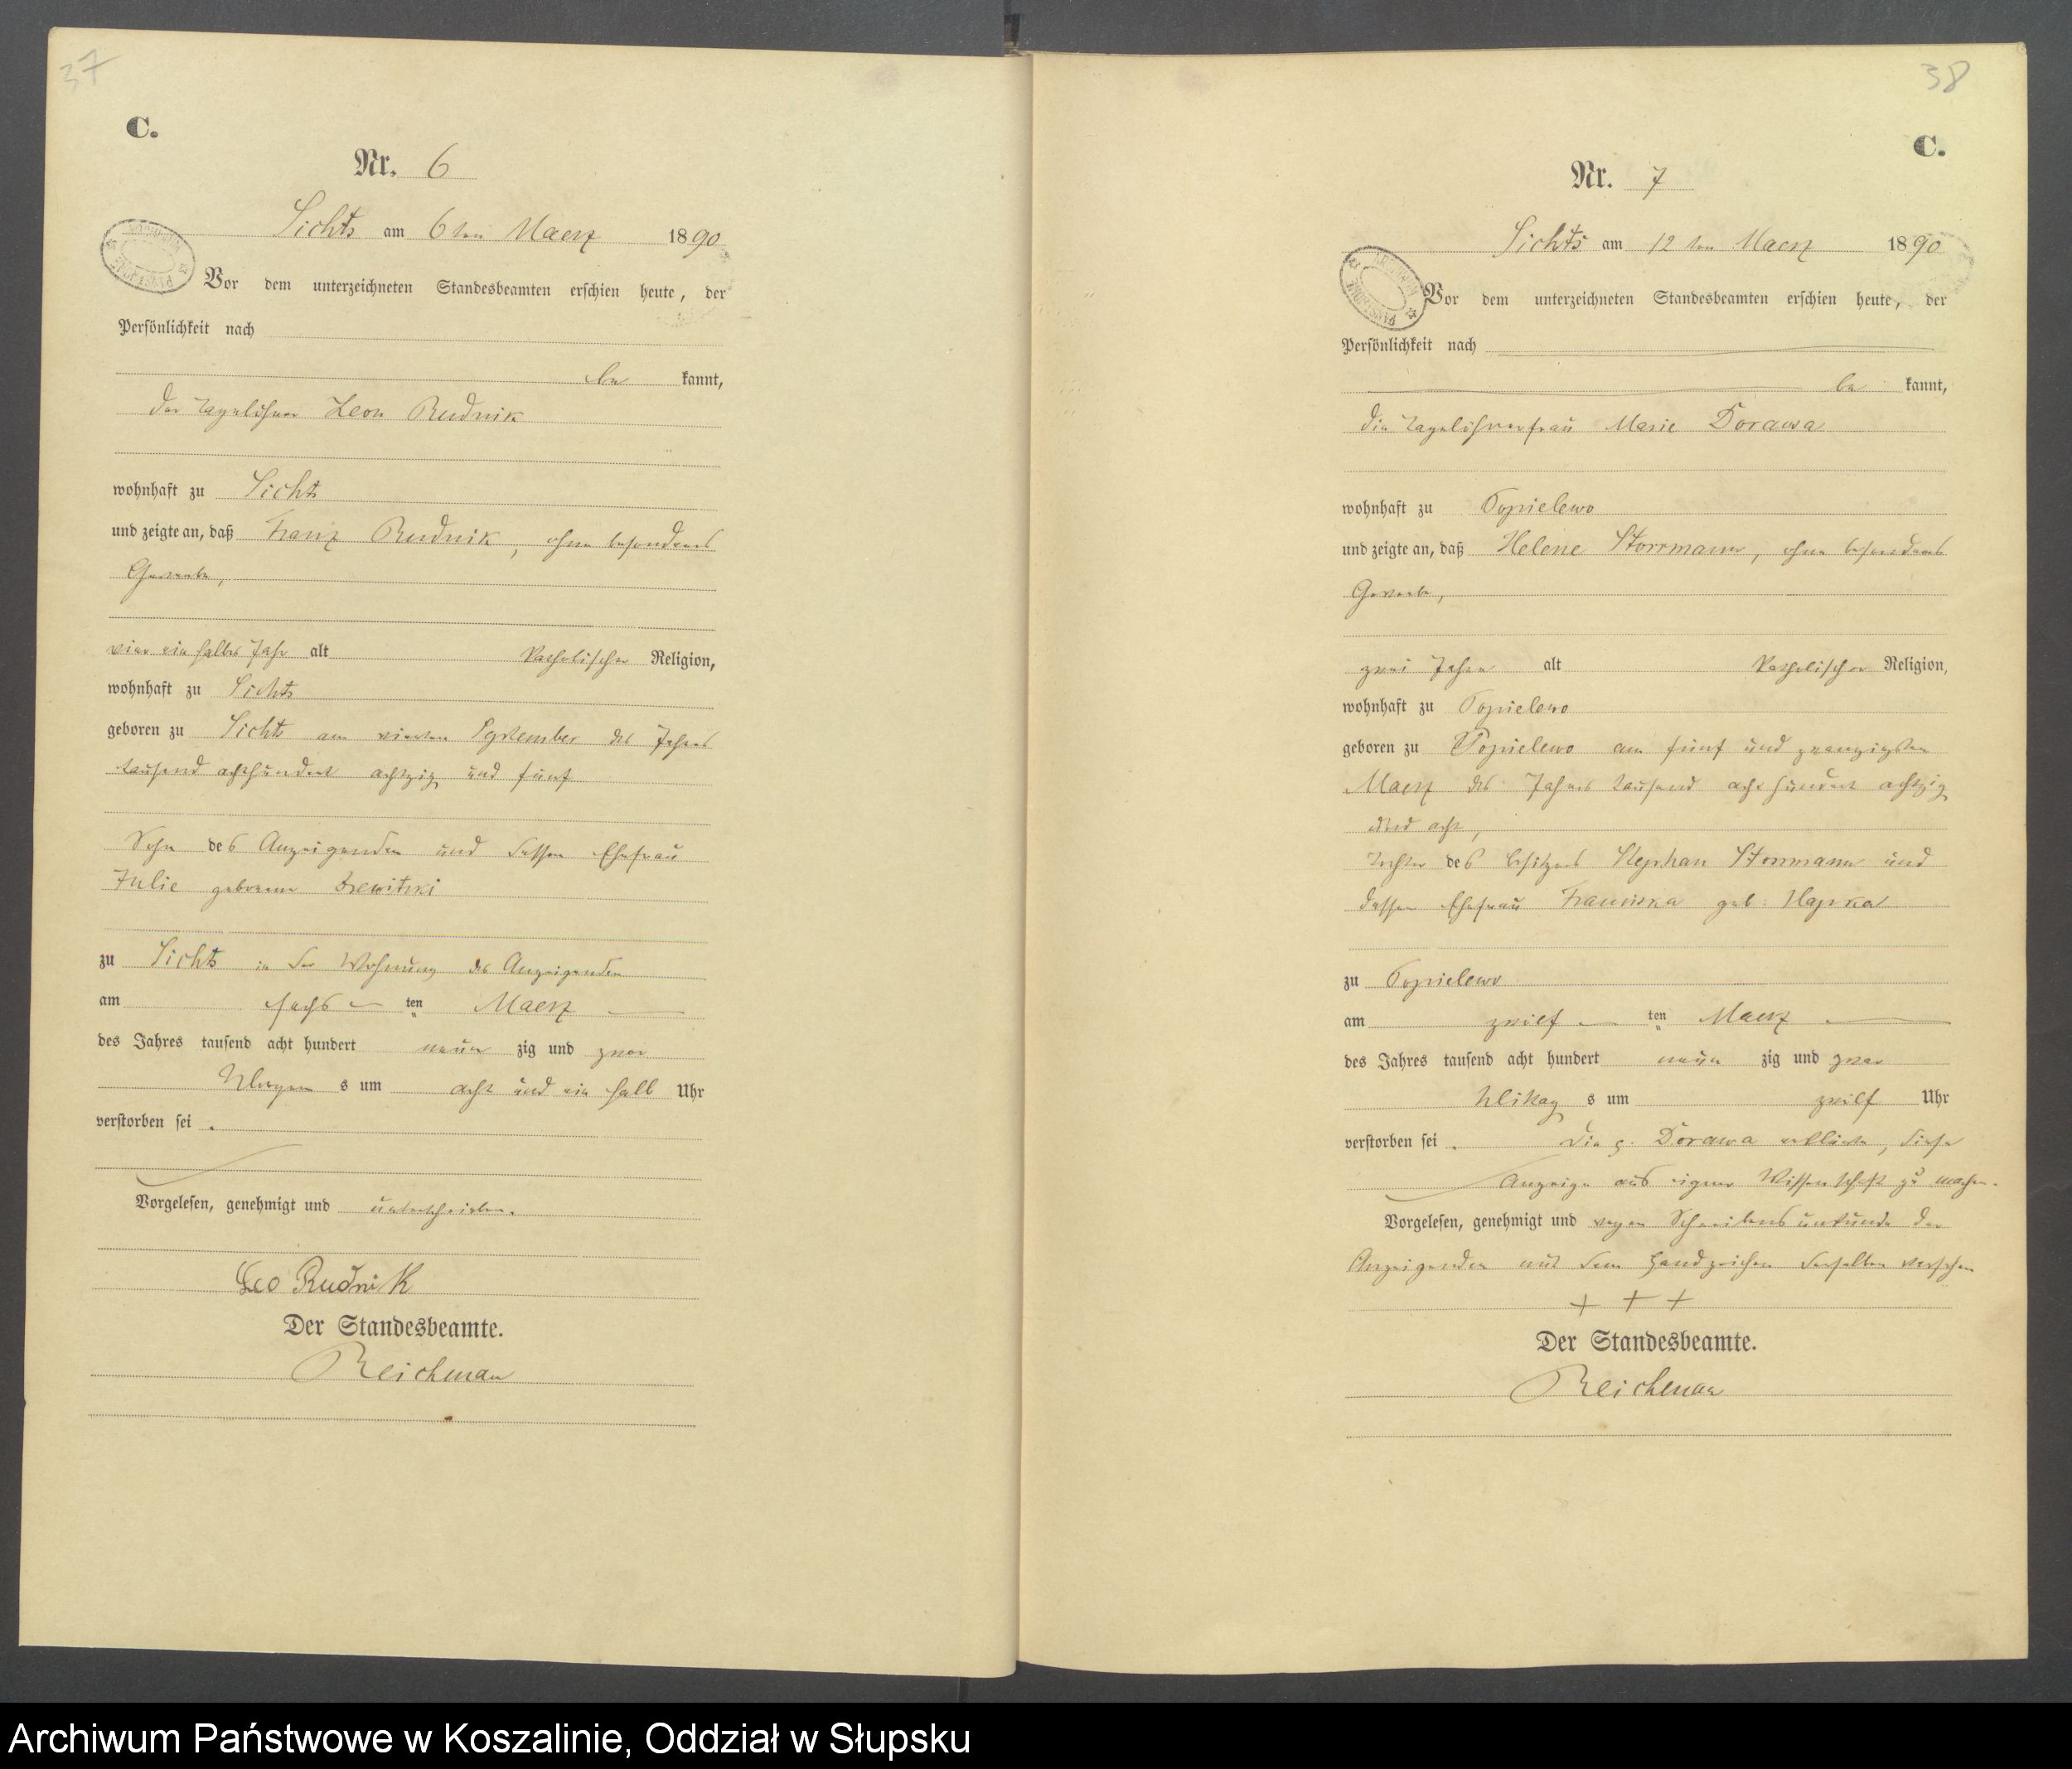 37
C.
Nr. 6
Lichts am 6ten Maerz 1890
Vor dem unterzeichneten Standesbeamten erschien heute, der
Persönlichkeit nach
be kannt,
der Tagelöhner Leon Rudnik
wohnhaft zu Lichts
und zeigte an, daß Franz Rudnik, ohne besonderes
Gewerbe,
vier ein halbes Jahr alt katholischer Religion,
wohnhaft zu Lichts
geboren zu Lichts am vierten September des Jahres
tausend achthundert achtzig und fünf
Sohn des Anzeigenden und dessen Ehefrau
Julie geborene
zu Lichts in der Wohnung des Anzeigenden
am sechs ten Maerz
des Jahres tausend acht hundert neun zig und zwar
Morgen s um acht und ein halb Uhr
verstorben sei.
Vorgelesen, genehmigt und unterschrieben.
Leo Rudnik
Der Standesbeamte.
Reichenau
38
C.
Nr. 7
Lichts am 12ten Maerz 1890
Vor dem unterzeichneten Standesbeamten erschien heute, der
Persönlichkeit nach
be kannt,
die Tagelöhnerfrau Marie Dorawa
wohnhaft zu Topielewo
und zeigte an, daß Helene Stormann, ohne besonderes
Gewerbe,
zwei Jahre alt katholischer Religion,
wohnhaft zu Topielewo
geboren zu Topielewo am fünf und zwanzigsten
Maerz des Jahres tausend acht hundert achtzig
und acht,
Tochter des Besitzers Stephan Stormann und
dessen Ehefrau Franciska geb. Hapka
zu Topielewo
am zwölf ten Maerz
des Jahres tausend acht hundert neun zig und zwar
Mittag s um zwölf Uhr
verstorben sei. Die p. Dorawa erklärte, diese
Anzeige aus eigener Wissenschaft zu machen.
Vorgelesen, genehmigt und wegen Schreibensunkunde der
Anzeigenden mit dem Handzeichen derselben versehen
+ + +
Der Standesbeamte.
Reichenau
Archiwum Państwowe w Koszalinie, Oddział w Słupsku